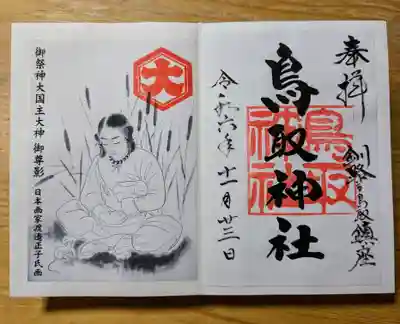 奉拝
釧路鳥取鎮座
鳥取神社
鳥取神社
令和六年十一月廿三日
大
御祭神 大国主大神 御尊影
日本画家渡邊正子氏画